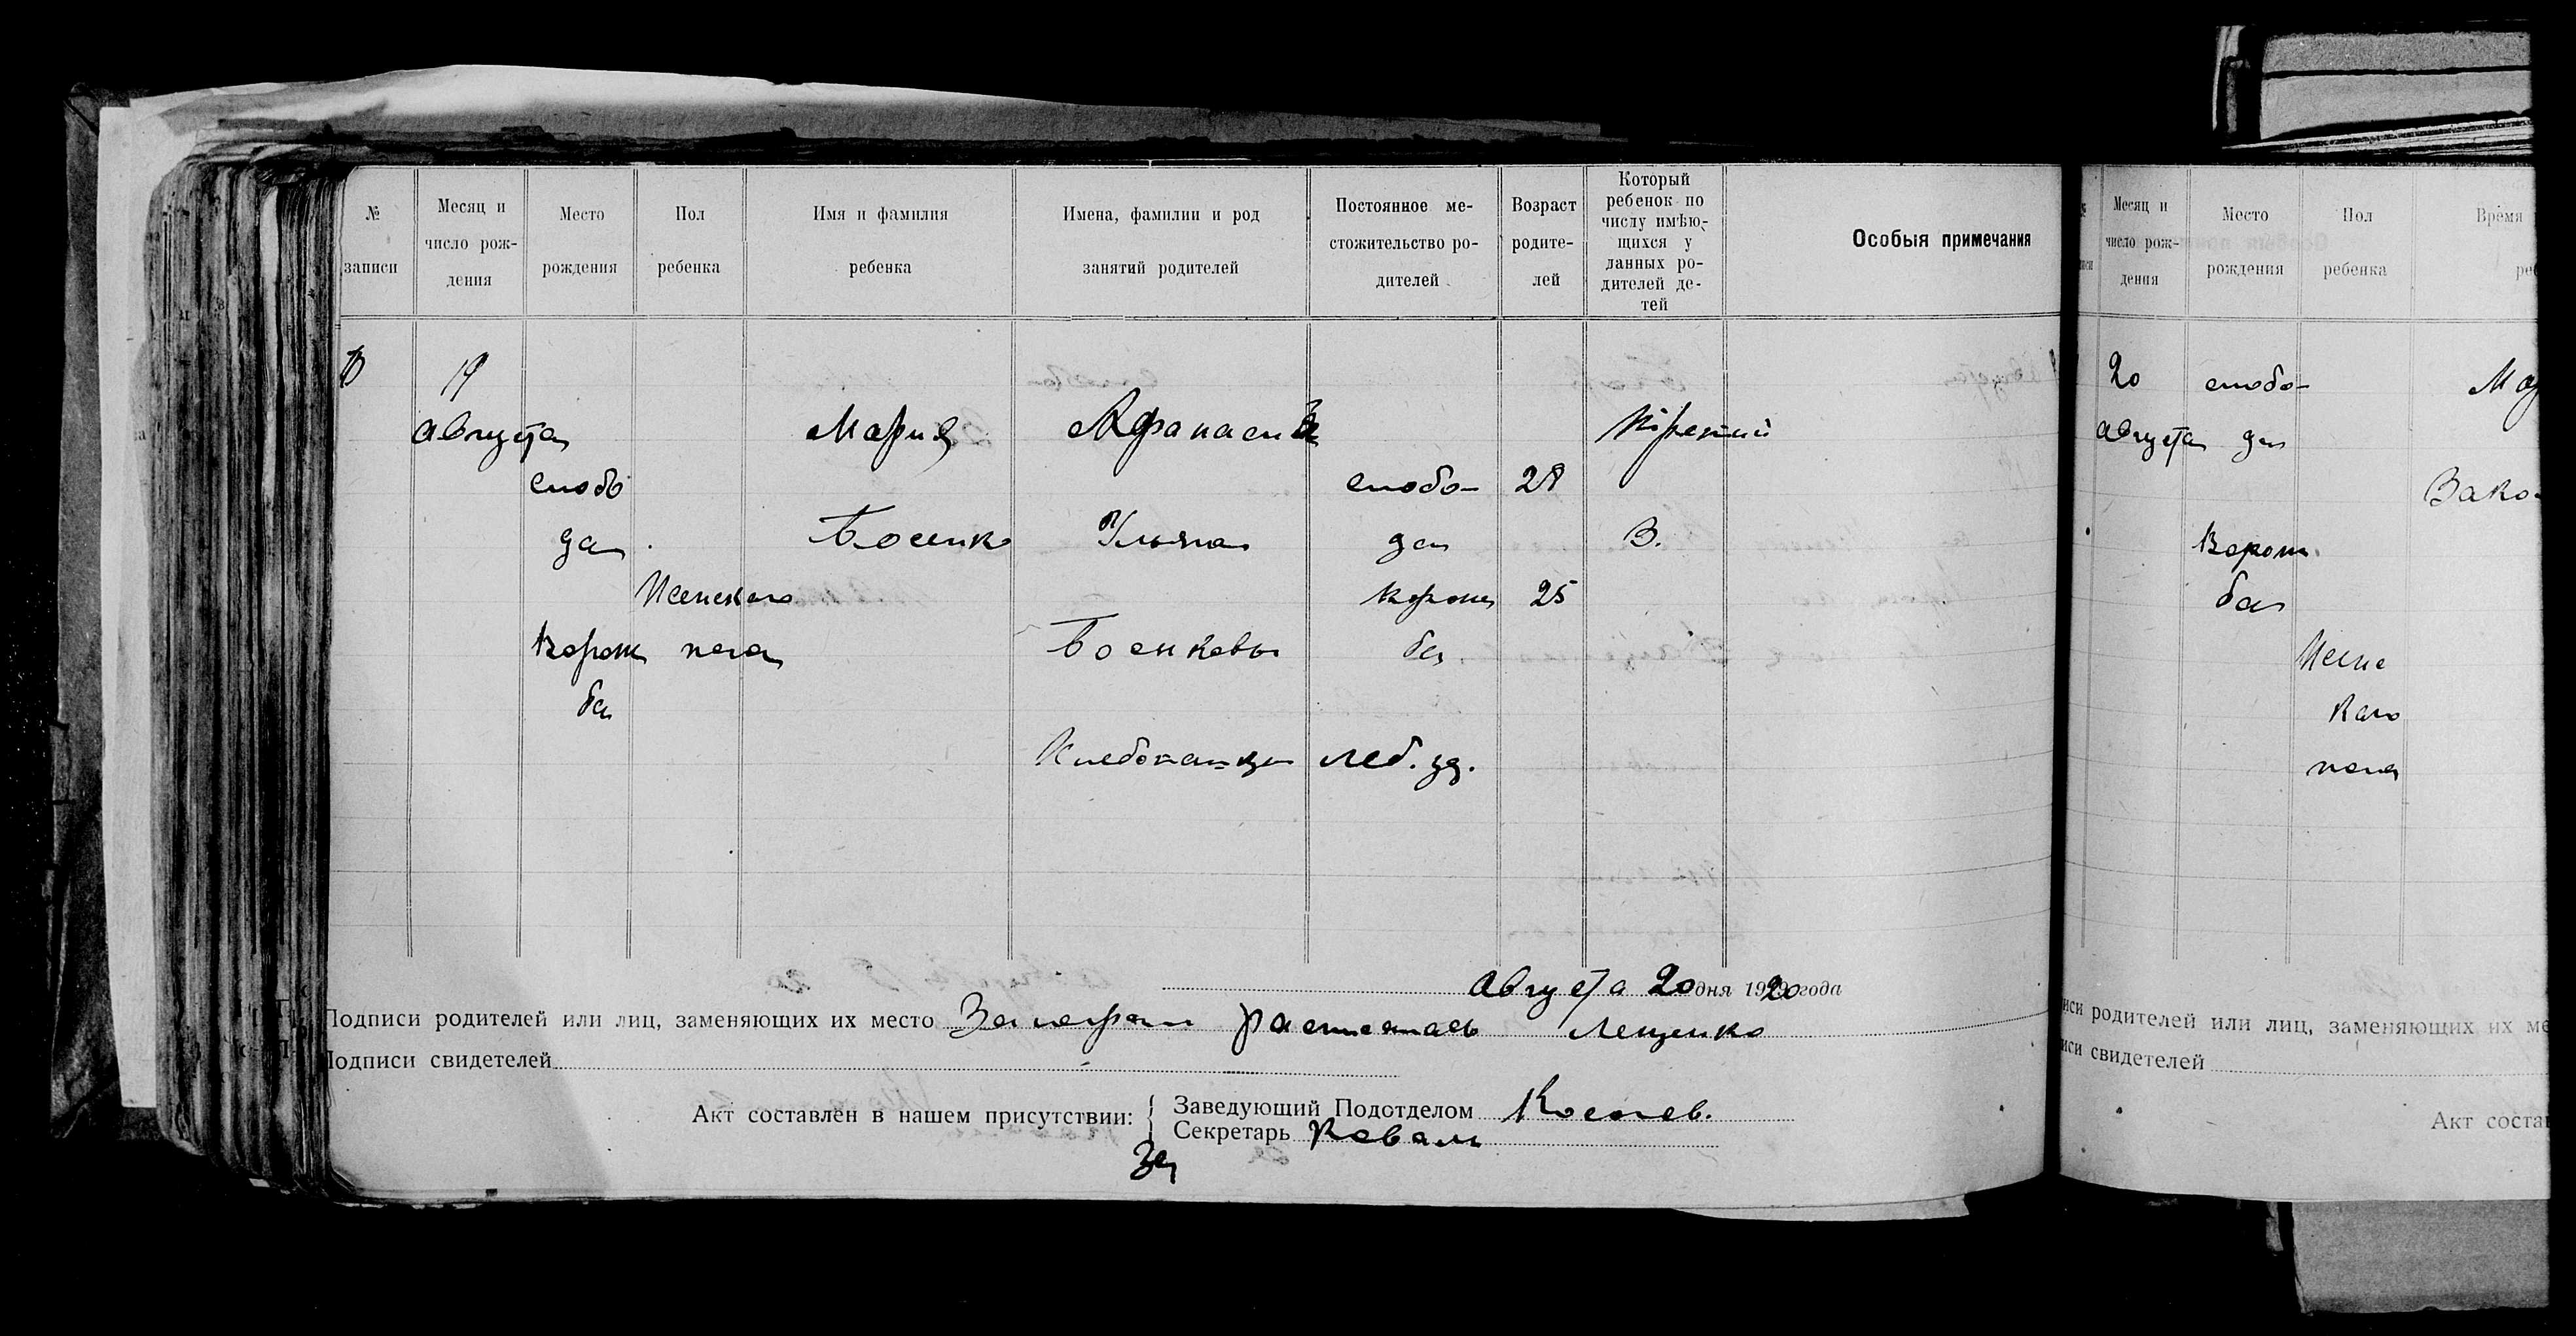 № записи
Месяц и число рож-дения
Место рождения
Пол ребенка
Имя и фамилия ребенка
Имена, фамилии и род занятий родителей
Постоянное ме-стожительство ро-дителей
Возраст родите-лей
Который ребенок по числу имѣю-щихся у данных ро-дителей де-тей
Особыя примечания
19
августа
слобо
да
Ворож
ба
Женскаго
пола
Мария
Босенко
Афанасий
Ульяна
Босенковы
Хлебопашцы
слобо-
да
Ворож
ба
Леб. уу.
28
25
Третий
3.
Августа 20 дня 1920 года
Подписи родителей или лиц, заменяющих их место За неграм расписался Лещенко
Подписи свидетелей
Акт составлен в нашем присутствии:
Заведующий Подотделом
Секретарь Коваль
За
Месяц и число рож-дения
Место рождения
Пол ребенка
Время
20
августа
слобо-
да
Ворож
ба
Женс
каго
пола
родителей или лиц, заменяющих их ме
свидетелей
Акт соста